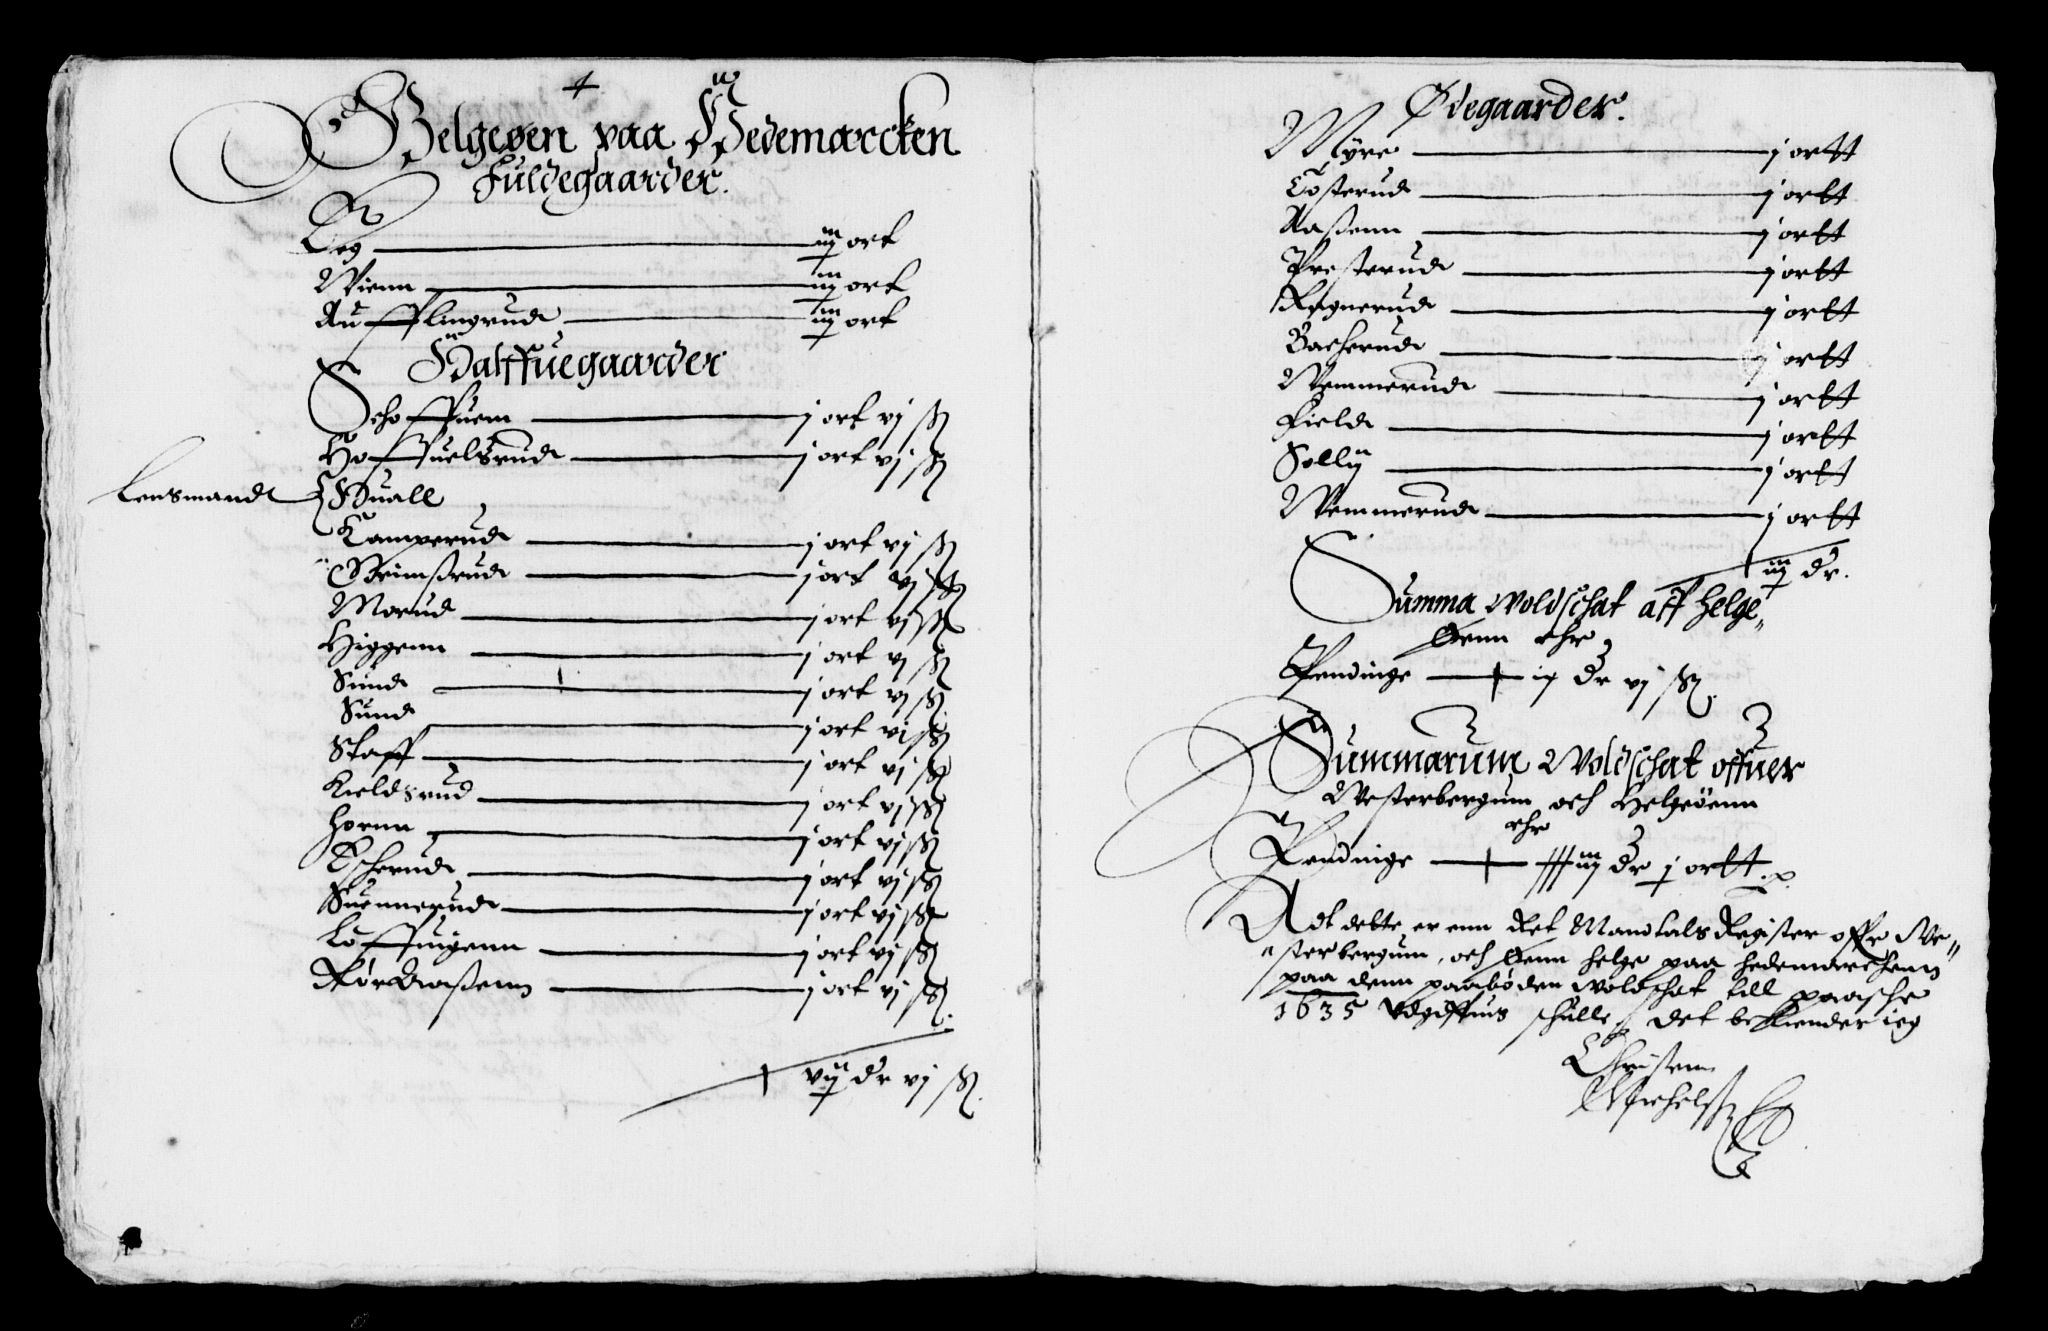 Helgeøen paa Hedemarcken
Fuldegaarder.
Eeg iij ort
Wienn iij ort
Au fflingrud iij ort
Halffuegaarder
Scho ffuem j ort vj ß
Ho ffuelsrud j ort vj ß
Lensmand Huall
Kamperud j ort vj ß
Grimßrud j ort vj ß
Morud j ort vj ß
Higgenn j ort vj ß
Sund j ort vj ß
Sund j ort vj ß
Staff j ort vj ß
Kieldsrud j ort vj ß
Hornn j ort vj ß
Escherud j ort vj ß
Suennerud j ort vj ß
Lo ffuigenn j ort vj ß
j ort vj ß
vij dr vj ß.
Ødegaarder.
Myre j ortt
Tosterud j ortt
Aaßenn j ortt
Presterud j ortt
Regnerud j ortt
Bacherud j ortt
Wemmerud j ortt
Field j ortt
Sollij j ortt
Wemmerud j ortt
iij dr.
Summa Woldschat aff Helge„
Øenn ehr
Pendinge ij dr vj ß.
Summarum Woldschat offuer
Westerbergum och Helgeöenn
ehr
Pendinge iij dr j ortt
Adt dette er enn Ret Mandtals Register offr We„
„sterbergum, och Øenn helge paa hedemarchenn
paa denn paabøden Woldschat till paasche
1635 Vdgiffuis schulle det bekiender ieg
Christenn
Michelß